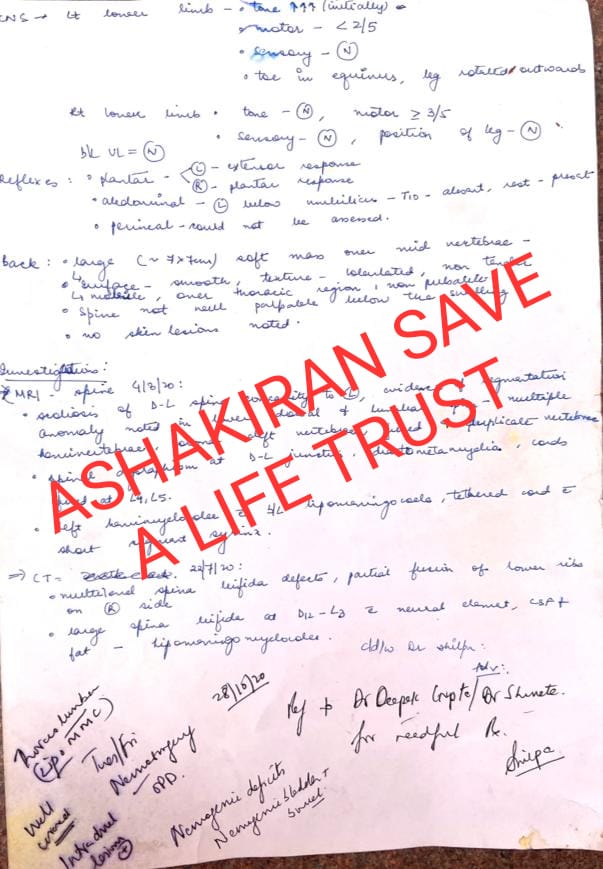 CNS → Lt lower limb - • tone ↑↑↑ (initially)
• motor - <2/5
• sensory - Ⓝ
• toe in equinus, leg rotated outwards
Rt lower limb • tone - Ⓝ, motor ≥ 3/5
• sensory - Ⓝ, position of leg - Ⓝ
b/L UL = Ⓝ
Reflexes: • plantar - Ⓛ - extensor response
Ⓡ - plantar response
• abdominal - Ⓛ below umbilicus - T10 - absent, rest - present
• perineal - could not be assessed.
Back: • large (~ 7x7cm) soft mass over mid vertebrae -
↳ surface - smooth, texture - lobulated, non tender
↳ over thoracic region, non pulsatile
• Spine not well palpable below the swelling
• no skin lesions noted.
Investigations:
MRI - spine 4/3/20:
• scoliosis of D-L spine convexity to Ⓛ, evidence of segmentation
anomaly noted in lower dorsal & lumbar - multiple
hemivertebrae, cleft vertebrae, fused vertebrae
• spinal dysraphism at D-L junction, diastematomyelia, cords
at L4, L5.
• left hemimyelocele c̄ lipomeningocele, tethered cord c̄
short segment syrinx.
⇒ CT - 22/7/20:
• multilevel spina bifida defects, partial fusion of lower ribs
on Ⓡ side
• large spina bifida at D12-L3 c̄ neural element, CSF +
fat - lipomeningomyelocele.
c/d/w Dr Shilpa:
Adv:
28/10/20
Ref to Dr Deepak Gupta / Dr Shweta.
for needful Rx.
Shilpa
Thoracolumbar
(Lipo MMC)
Tues/Fri
Neurosurgery
OPD.
Well
covered
Intradural
Neurogenic deficits
Neurogenic bladder +
bowel
ASHAKIRAN SAVE
A LIFE TRUST